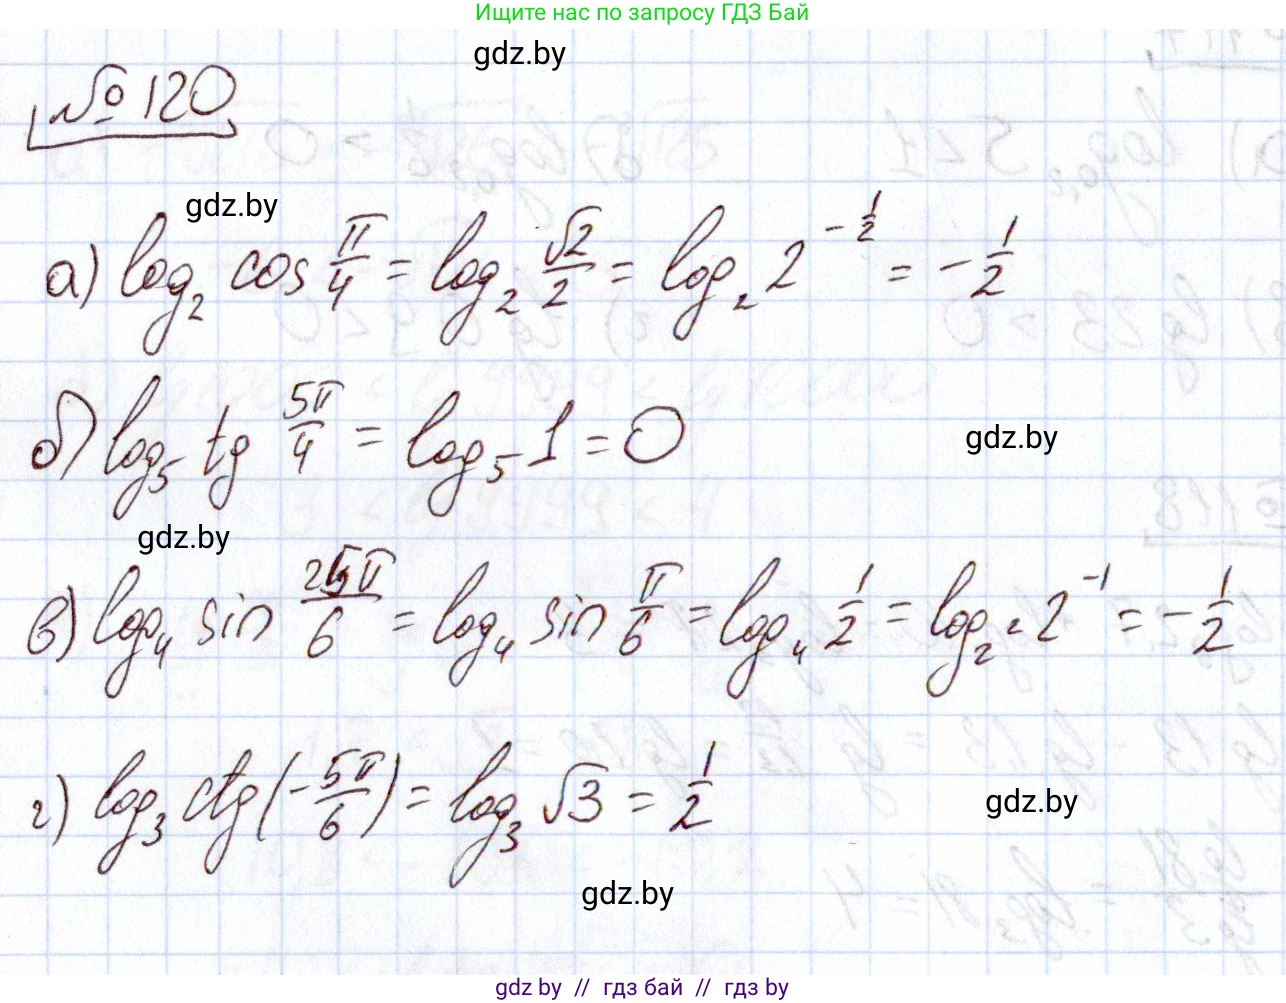 Ищите нас по запросу ГДЗ Бай
gdz.by
№ 120
gdz.by
а) log₂ cos π/4 = log₂ √2/2 = log₂ 2^(-1/2) = -1/2
б) log₅ tg 5π/4 = log₅ 1 = 0
gdz.by
gdz.by
в) log₄ sin 25π/6 = log₄ sin π/6 = log₄ 1/2 = log₂² 2⁻¹ = -1/2
г) log₃ ctg(-5π/6) = log₃ √3 = 1/2
gdz.by
gdz.by
gdz by // гдз бай // гдз by